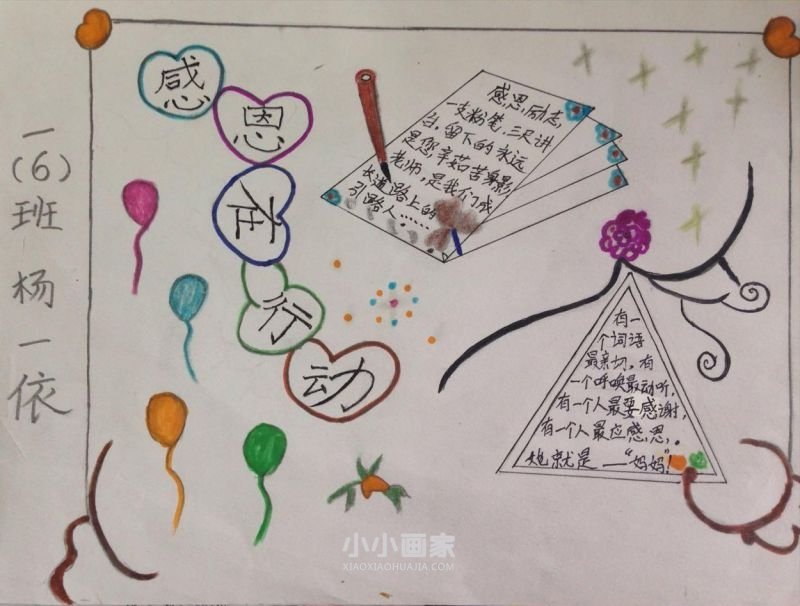 一
(6)
班
杨
一
依
感
恩
在
行
动
感恩励志,
一支粉笔,三尺讲
台,留下的永远
是您,辛茹苦身影
老师,是我们成
长道路上的
引路人……
有一
个词语
最亲切,有
一个呼唤最动听,
有一个人最要感谢,
有一个人最应感恩,。
她就是——“妈妈”!
小小画家
XIAOXIAOHUAJIA.COM